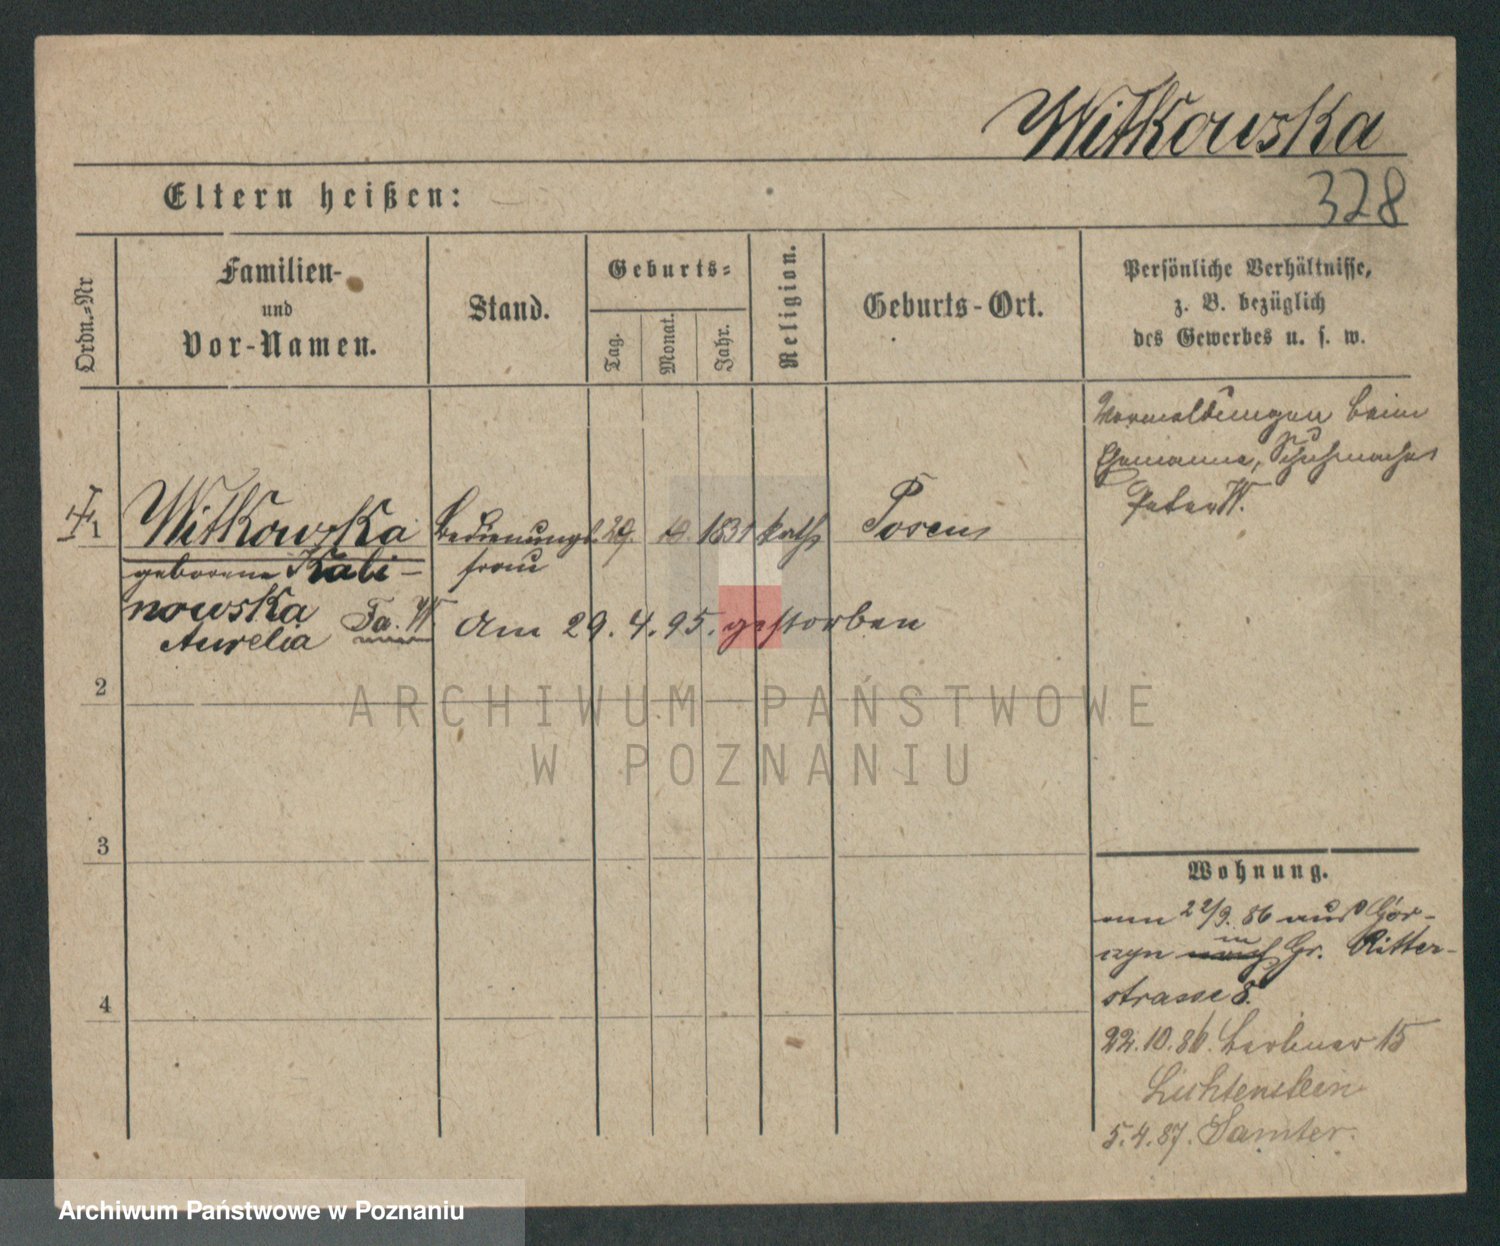 Witkowska
328
Eltern heißen:
Ordn.-Nr
Familien-
und
Vor-Namen.
Stand.
Geburts-
Tag.
Monat.
Jahr.
Religion.
Geburts-Ort.
Persönliche Verhältnisse,
z. B. bezüglich
des Gewerbes u. s. w.
Vormeldungen beim
Ehemanne, Schuhmacher
Peter W.
1 Witkowska Bedienungs- 29. 1831 kath Posen
geborene Kali- frau
nowska Fa. W
Aurelia
Am 29.4.95. gestorben
2
3
4
Wohnung.
22/9. 86 aus Gór-
czyn in Gr. Ritter-
strasse 8.
22.10.86. Berliner 15
Lichtenstein
5.4.87. Samter.
ARCHIWUM PAŃSTWOWE
W POZNANIU
Archiwum Państwowe w Poznaniu